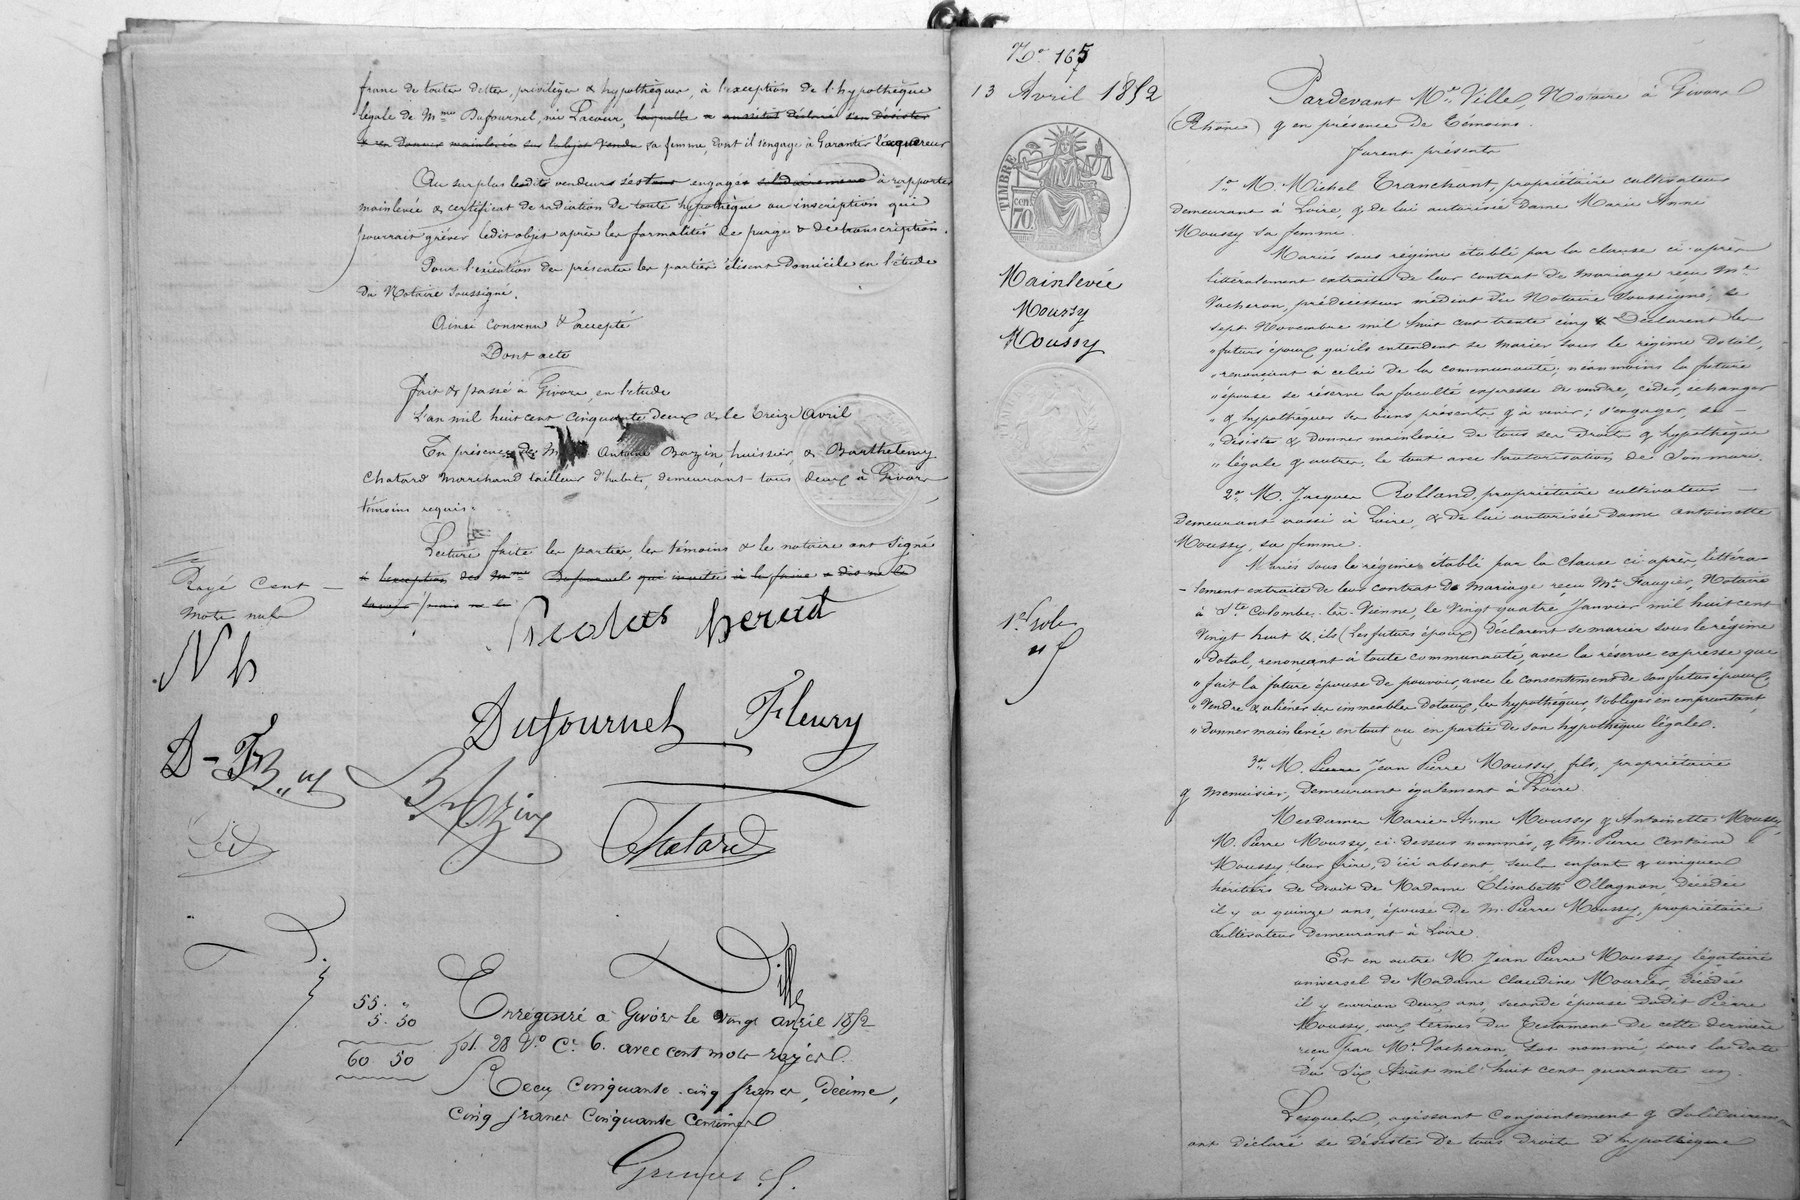 franc de toutes dettes, privilèges & hypothèques, à l'exception de l'hypothèque
légale de Mme Dufournel, née Lacour, laquelle a aussitôt déclaré s'en désister
& en donner mainlevée sur l'objet vendu sa femme, dont il s'engage à Garantir l'acquéreur
Au surplus lesdits vendeurs s'est engagés solidairement à rapporter
mainlevée & certificat de radiation de toute hypothèque ou inscription qui
pourrait gréver ledit objet après les formalités de purge & de transcription.
Pour l'exécution des présentes les parties élisent Domicile en l'étude
du Notaire soussigné.
Ainsi convenu & accepté
Dont acte
Fait & passé à Givors, en l'étude
L'an mil huit cent cinquante deux & le Treize Avril
En présence de M Antoine Bazin, huissier, & Barthelemy
Chatard Marchand tailleur d'habits, demeurant tous deux à Givors,
témoins requis.
Lecture faite les parties, les témoins & le notaire ont signé
à l'exception de Mme Dufournel qui invitée à le faire a dit ne le
savoir
Rayé Cent
Mots nuls
Nicolas herad
N h
Dufournel Fleury
D - F
B
Bazin
Chatard
Ville
55. "
5. 50
60 50
Enregistré à Givors le vingt avril 1852
fol. 28 Vo Ce 6. avec cent mots rayés.
Reçu cinquante cinq francs, Décime,
cinq francs cinquante centimes
No 165
13 Avril 1852
TIMBRE
70 cen
Mainlevée
Moussy
Moussy
1er Role
Pardevant Me Ville, Notaire à Givors
(Rhône) & en présence de Témoins.
furent présents
1o M. Michel Tranchant, propriétaire cultivateur
demeurant à Loire, & de lui autorisée Dame Marie Anne
Moussy sa femme.
Mariés sous régime établé par la clause ci-après
littéralement extraite de leur contrat de mariage reçu Me
Vacheron, prédécesseur médiat du Notaire soussigné, le
sept Novembre mil huit cent trente cinq & Déclarent les
" futurs époux qu'ils entendent se marier sous le régime Dotal,
" renonçant à celui de la communauté; néanmoins la future
" épouse se réserve la faculté expresse de vendre, céder, échanger
" & hypothéquer ses biens présents & à venir; s'engager, se
" désister & Donner mainlevée de tous ses Droits & hypothèque
" légale & autres, le tout avec l'autorisation de son mari.
2o M. Jacques Rolland, propriétaire cultivateur
Demeurant aussi à Loire & de lui autorisée Dame Antoinette
Moussy, sa femme.
Mariés sous le régime établé par la clause ci après, littéra-
-lement extraite de leur contrat de Mariage reçu Me Faugier, Notaire
à Ste Colombe-lès-Vienne, le vingt quatre Janvier mil huit cent
vingt huit & ils (les futurs époux) déclarent se marier sous le régime
" Dotal, renonçant à toute communauté, avec la réserve expresse que
" fait la future épouse de pouvoir, avec le consentement de son futur époux,
" vendre & aliéner ses immeubles Dotaux, les hypothéquer, s'obliger en empruntant
" donner mainlevée en tout ou en partie de son hypothèque légale.
3o M. Pierre Jean Pierre Moussy fils, propriétaire
& menuisier, Demeurant également à Loire.
Mesdames Marie-Anne Moussy & Antoinette Moussy,
M. Pierre Moussy, ci-dessus nommés, & M. Pierre Antoine
Moussy leur frère, d'ici absent, seuls enfants & uniques
héritiers de Droit de Madame Elisabeth Ollagnon, Décédée
il y a quinze ans, épouse de M. Pierre Moussy, propriétaire
cultivateur Demeurant à Loire.
Et en outre M. Jean Pierre Moussy légataire
universel de Madame Claudine Mourier, Décédée
il y environ Deux ans, seconde épouse dudit Pierre
Moussy, aux termes du Testament de cette dernière
reçu par Me Vacheron, jà nommé, sous la date
du Six Août mil huit cent quarante un.
Lesquels, agissant conjointement & solidairement
ont déclaré se désister de tous droits d'hypothèque